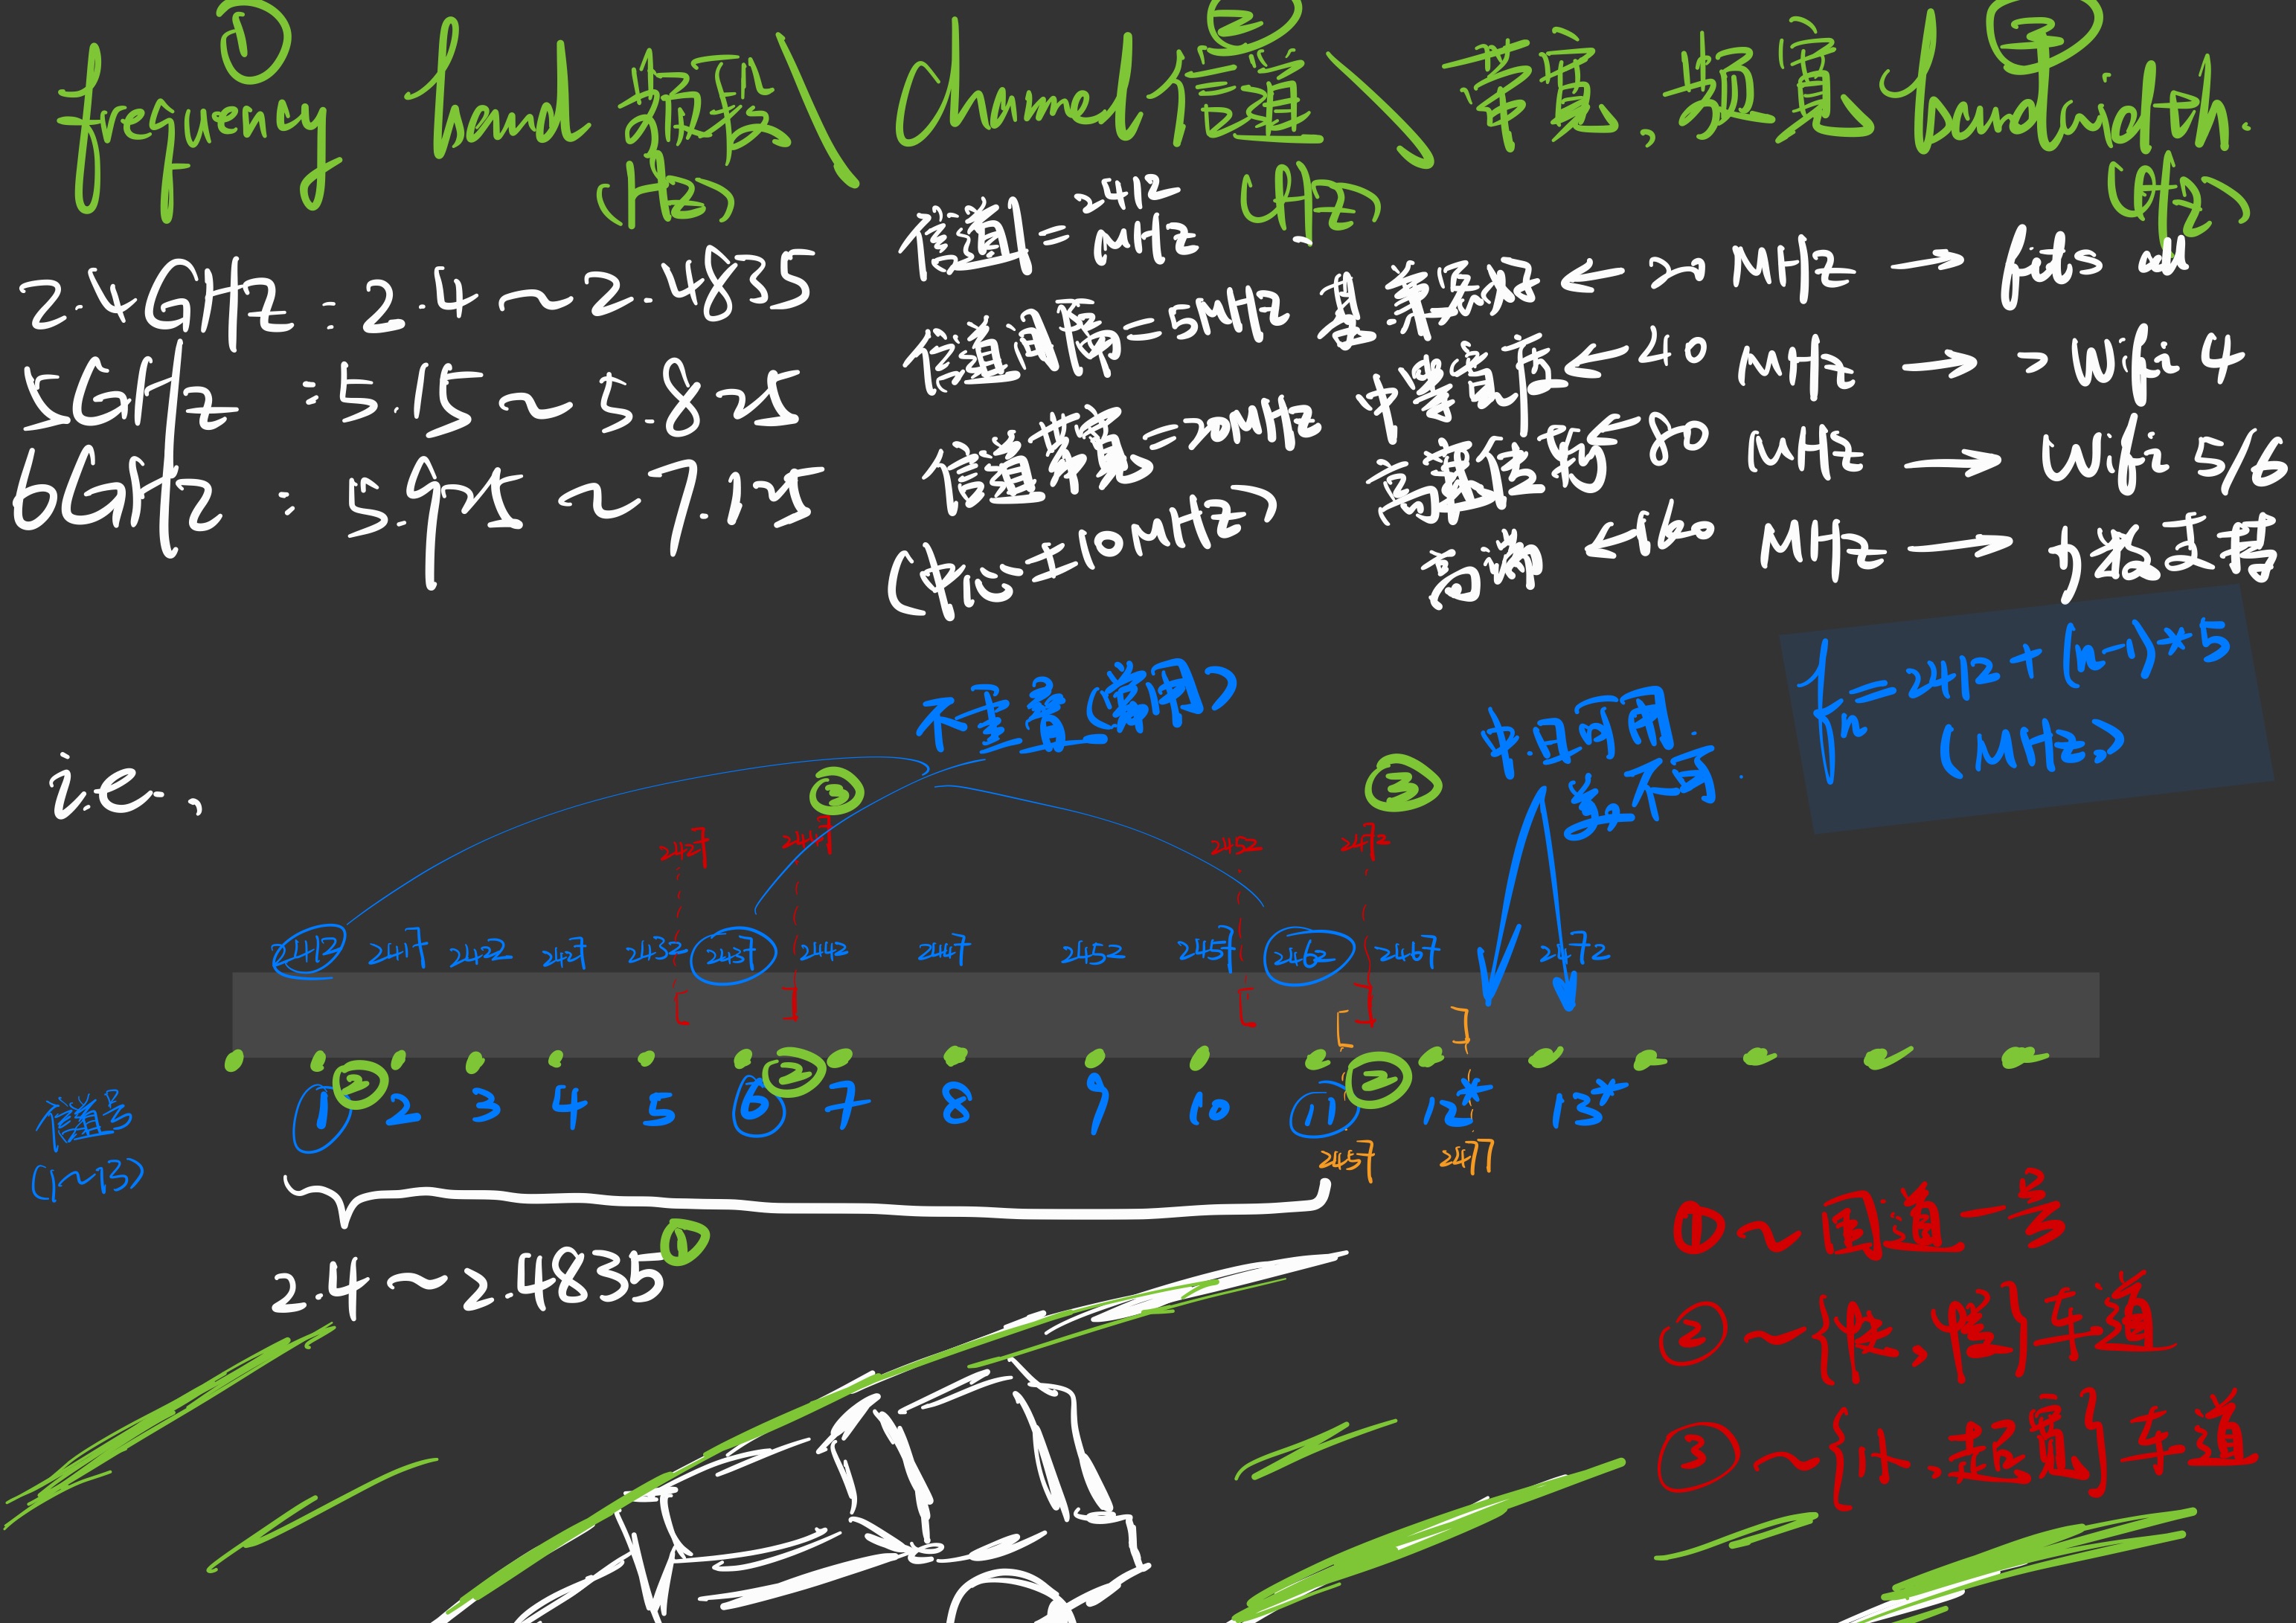 ① ② ③
frequency band 频段 \ channel 信道 \ 带宽, 频宽 bandwidth.
(Hz) (Hz)
2.4 GHz = 2.4 ~ 2.4835
5 GHz = 5.15 ~ 5.825
6 GHz = 5.925 ~ 7.125
信道1 = 2412 MHz
信道间隔 = 5MHz
信道带宽 = 20MHz
(中心 ± 10 MHz)
← 20 MHz → fits all
← 40 MHz → > Wifi 4
← 80 MHz → Wifi 5/6
高端 ← 160 MHz →
fn = 2412 + (n-1) * 5
(MHz)
不重叠 (常用)
中国可用
美不可.
i.e.,
③ ③
2427 2447 2452 2472
2412 2417 2422 2427 2432 2437 2442 2447 2452 2457 2462 2467 2472
[ ] [ ] [ ]
② ② ②
信道号 1 2 3 4 5 6 7 8 9 10 11 12* 13*
(1~13)
2457 2477
2.4 ~ 2.4835 ①
① ~ 国道一号
② ~ {快, 慢} 车道
③ ~ {小, 超宽} 车道